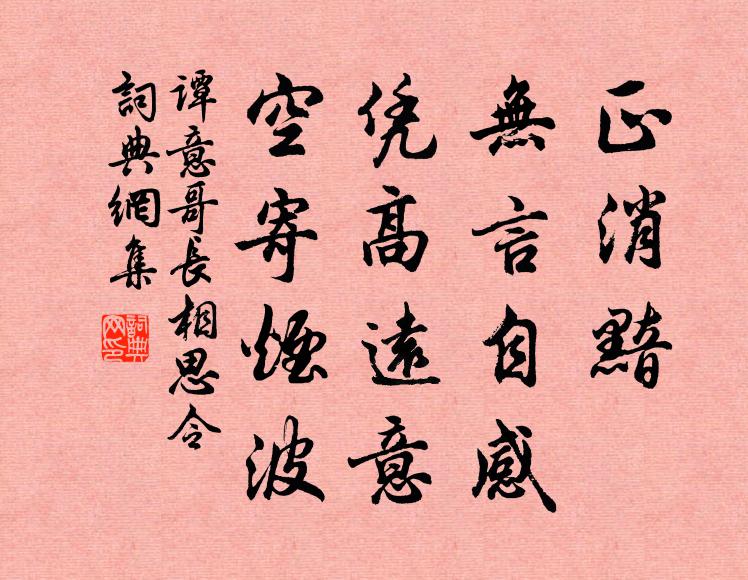 正消黯
無言自感
凭高遠意
空寄煙波
谭意哥長相思令
詞典網集
詞典
网印